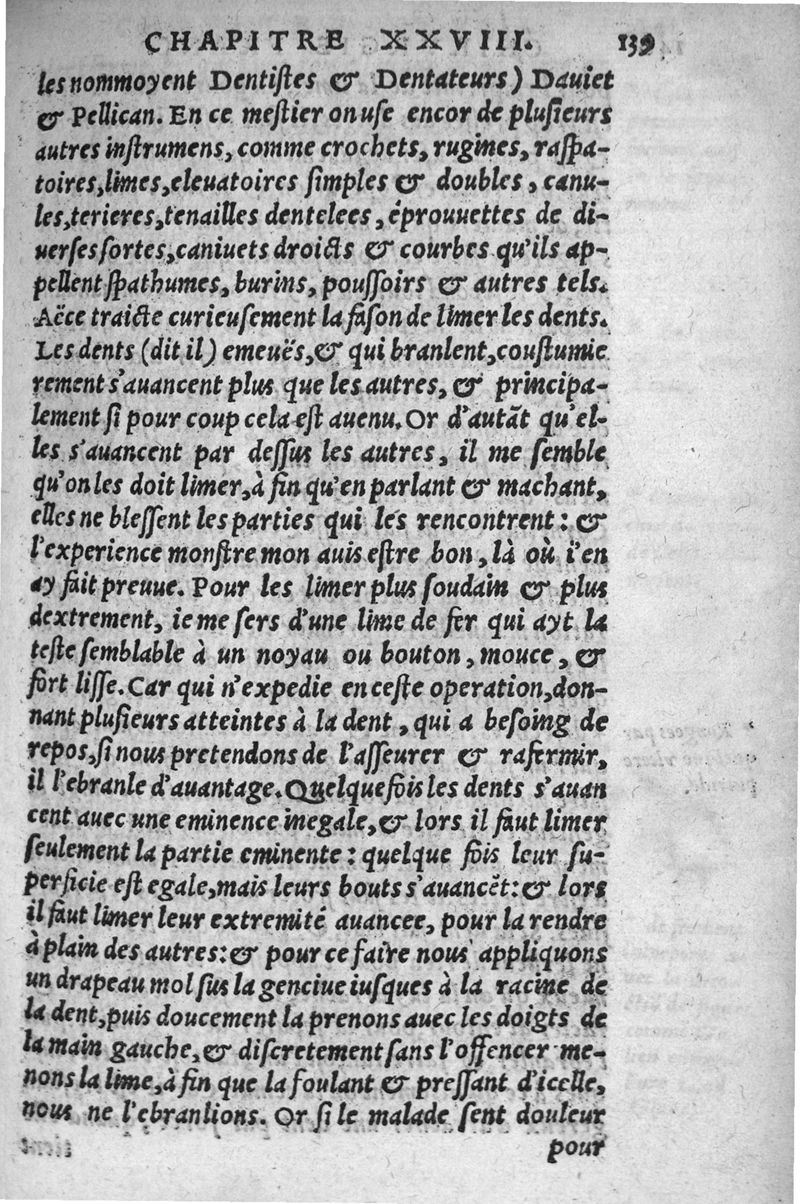 CHAPITRE XXVIII. 139
les nommoyent Dentiſtes & Dentateurs) Dauiet
& Pellican. En ce meſtier on uſe encor de pluſieurs
autres inſtrumens, comme crochets, rugines, raſpa-
toires, limes, eleuatoires ſimples & doubles, canu-
les, terieres, tenailles dentelees, éprouuettes de di-
uerſes ſortes, caniuets droicts & courbes qu'ils ap-
pellent ſpathumes, burins, pouſſoirs & autres tels.
Aëce traicte curieuſement la faſon de limer les dents.
Les dents (dit il) emeuës, & qui branlent, couſtumie
rement s'auancent plus que les autres, & principa-
lement ſi pour coup cela eſt auenu. Or d'autãt qu'el-
les s'auancent par deſſus les autres, il me ſemble
qu'on les doit limer, à fin qu'en parlant & machant,
elles ne bleſſent les parties qui les rencontrent: &
l'experience monſtre mon auis eſtre bon, là où i'en
ay fait preuue. Pour les limer plus ſoudain & plus
dextrement, ie me ſers d'une lime de fer qui ayt la
teſte ſemblable à un noyau ou bouton, mouce, &
fort liſſe. Car qui n'expedie en ceſte operation, don-
nant pluſieurs atteintes à la dent, qui a beſoing de
repos, ſi nous pretendons de l'aſſeurer & rafermir,
il l'ebranle d'auantage. Quelque fois les dents s'auan
cent auec une eminence inegale, & lors il faut limer
ſeulement la partie eminente: quelque fois leur ſu-
perficie eſt egale, mais leurs bouts s'auancẽt: & lors
il faut limer leur extremité auancee, pour la rendre
à plain des autres: & pour ce faire nous appliquons
un drapeau mol ſus la genciue iuſques à la racine de
la dent, puis doucement la prenons auec les doigts de
la main gauche, & diſcretement ſans l'offencer me-
nons la lime, à fin que la foulant & preſſant d'icelle,
nous ne l'ebranlions. Or ſi le malade ſent douleur
pour